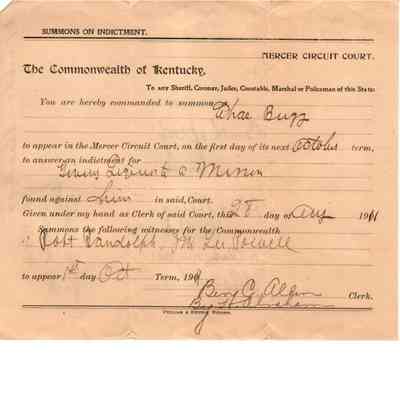 SUMMONS ON INDICTMENT.
MERCER CIRCUIT COURT.
The Commonwealth of Kentucky,
To any Sheriff, Coroner, Jailer, Constable, Marshal or Policeman of this State:
You are hereby commanded to summon Chas Bugg
to appear in the Mercer Circuit Court, on the first day of its next October term,
to answer an indictment for
Giving Liquor to a Minor
found against him in said, Court.
Given under my hand as Clerk of said Court, this 28 day of Aug 1911
Summons the following witnesses for the Commonwealth
Robt Randolph, J M Lee Powell
to appear 1st day Oct Term, 191
Ben C. Allin Clerk.
By